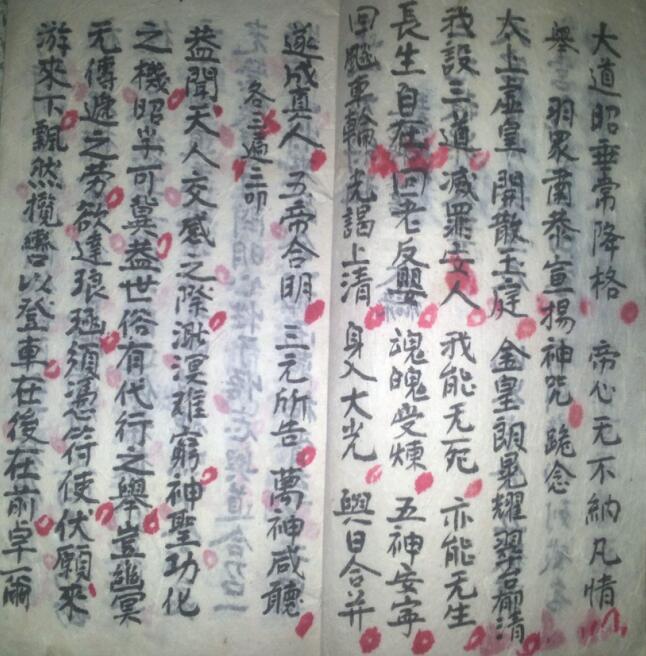 大道昭垂常降格 帝心无不納凡情
羽眾肅恭宣揚神咒 跪念
太上虛皇 開散玉庭 金皇朗晃耀翠谷郁清
我設三道 滅罪度人 我能无死 亦能无生
長生自在 回老反嬰 魂魄受煉 五神安寧
回飈車輪 光謁上清 身入大光 與日合并
遂成真人 五帝合明 三元所告 萬神咸聽
各三遍二叩
蓋聞天人交感之際 溟難窮神聖功化
之機昭半可冀蓋世俗有代行之舉豈幽冥
无傳遞之勞欲達琅函須憑符使伏願來
游來下飄然攬轡以登車在後在前卓爾